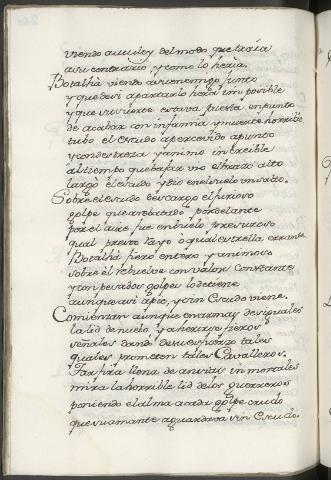 viendo a muley del modo que traia
a su contrario y como lo heria.
Botalhà viendo a su enemigo junto
y que de si apartarlo hera imposible
y que su suerte estava puesta en punto
de acabar con infamia y muerte horrible
tubo el escudo apercevido a punto
y con destreza y animo increible
al tiempo que bajar vio el brazo alto
largò el escudo y dio en el suelo un salto.
Sobre el escudo descargo el furioso
golpe que arrebatado por delante
por el aire fue en buelo presuroso
qual presto rayo o qual estrella errante
Botalhà fiero entero y animoso
sobre èl rebuelve con valor constante
y con pesados golpes lo detiene
aunque assi àpie, y sin Escudo viene.
Comienzan aunque en armas desiguales
la lid de nuebo, y a hezerse fieros
señales dando de su esfuerzo tales
quales prometen tales Cavalleros.
Tarfira llena de ansias inmortales
mira la horrible lid de los guerreros
poniendo el alma a cada golpe crudo
que su amante aguardava sin Escudo.